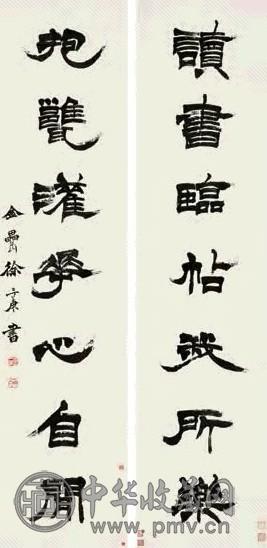 讀書臨帖我所樂
抱甕灌花心自閒
金罍徐三庚書
中华收藏网
www.pmv.cn